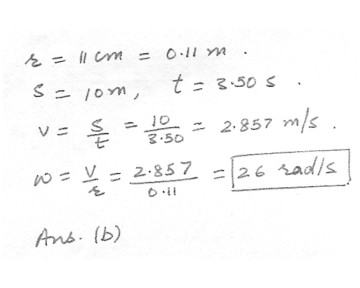 r = 11 cm = 0.11 m .
S = 10m, t = 3.50 s .
v = S/t = 10/3.50 = 2.857 m/s .
w = v/r = 2.857/0.11 = 26 rad/s
Ans. (b)